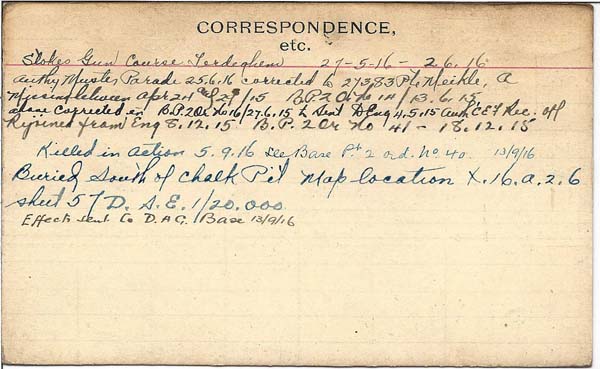 CORRESPONDENCE,
etc.
Stokes Gun Course Terdeghem 27-5-16 - 2.6.16
Authy Muster Parade 25.6.16 corrected to 27383 Pte Meikle, A
Missing between Apr 24 & 29/15 B.P.2 Or No 14/13.6.15
Corrected in B.P.2 Or No 16/27.6.15 to Sent D Eng 4.5.15 Auth C.E.F Rec. off
Rejoined from Eng 8.12.15 B.P. 2 Or No 41 - 18.12.15
Killed in action 5.9.16 See Base Pt 2 ord. No 40. 13/9/16
Buried South of Chalk Pit Map location X.16.a.2.6
sheet 57 D. S.E. 1/20.000
Effects sent to D.A.G. Base 13/9/16